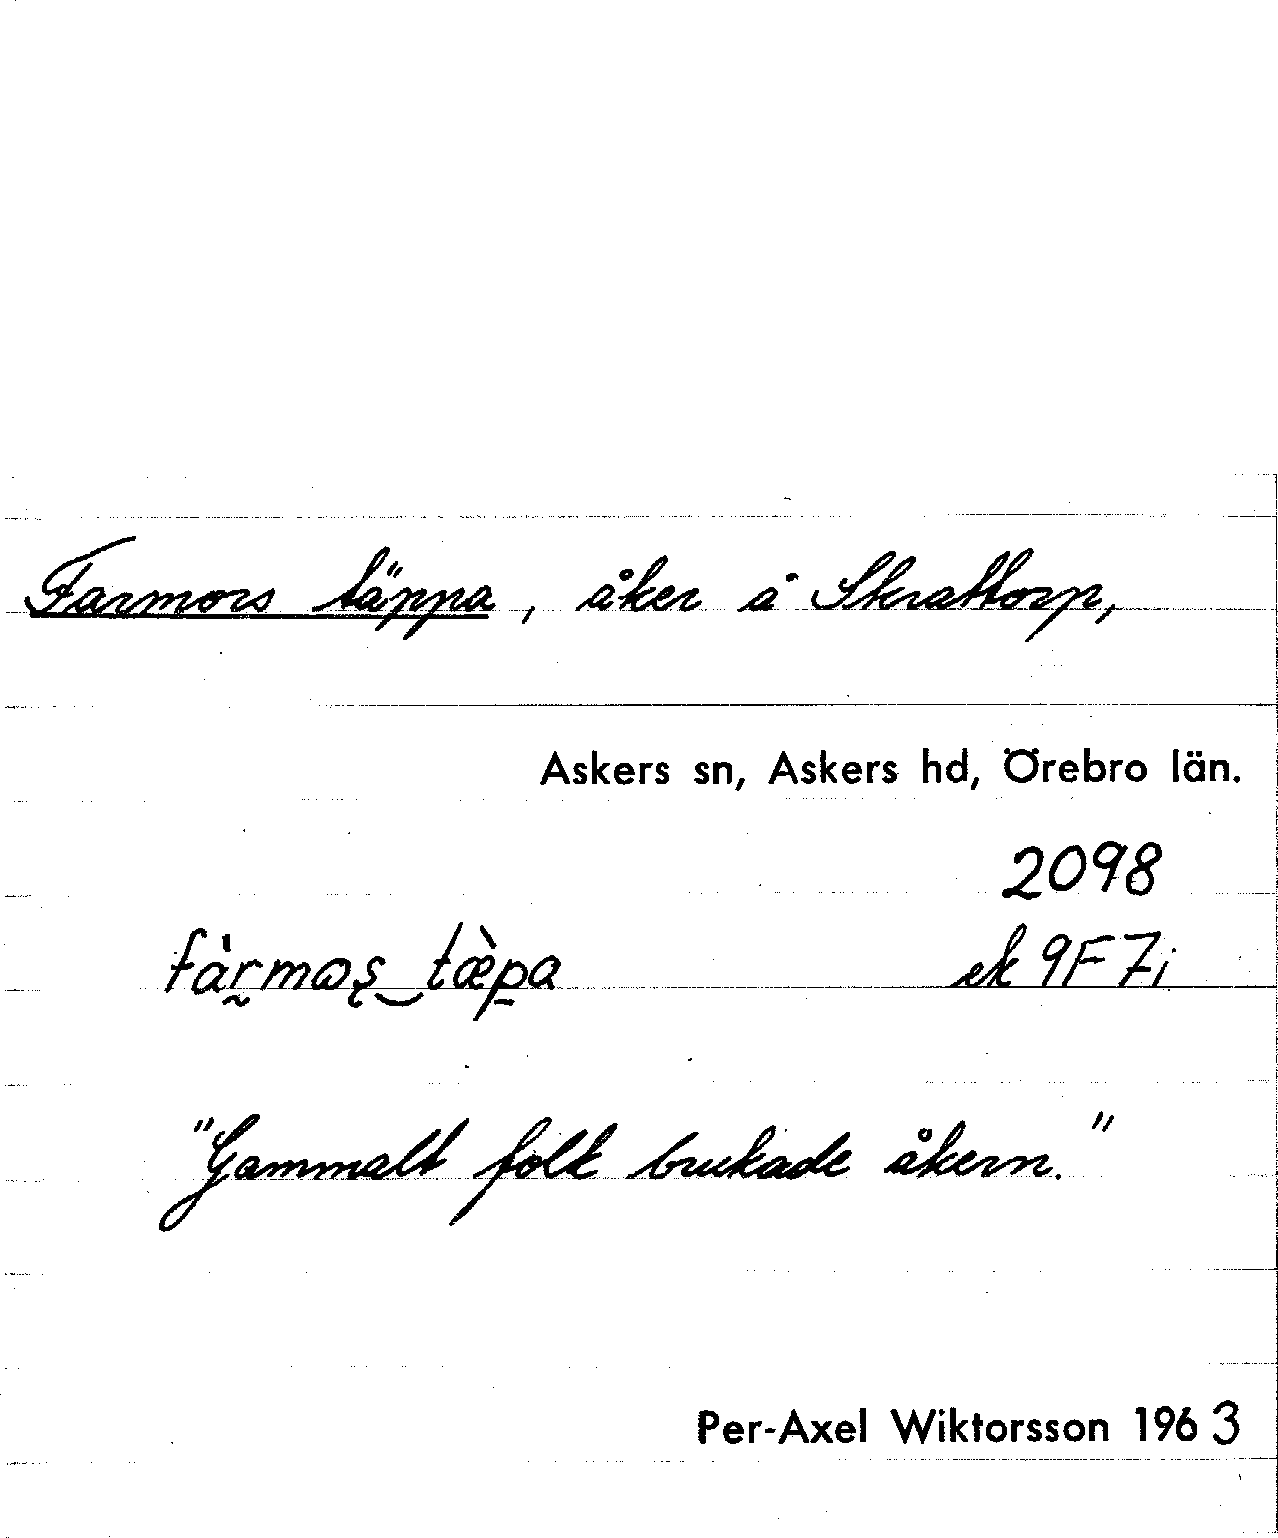 Farmors täppa, åker å Skrattorp,
Askers sn, Askers hd, Örebro län.
2098
fàr̰mɷş‿tæ̀p̠a
ek 9F7i
"Gammalt folk brukade åkern."
Per-Axel Wiktorsson 1963